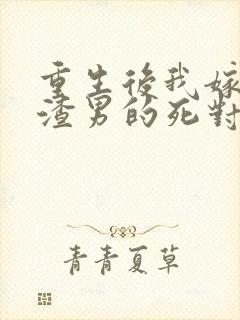 重生後我嫁
渣男的死對
青青夏草